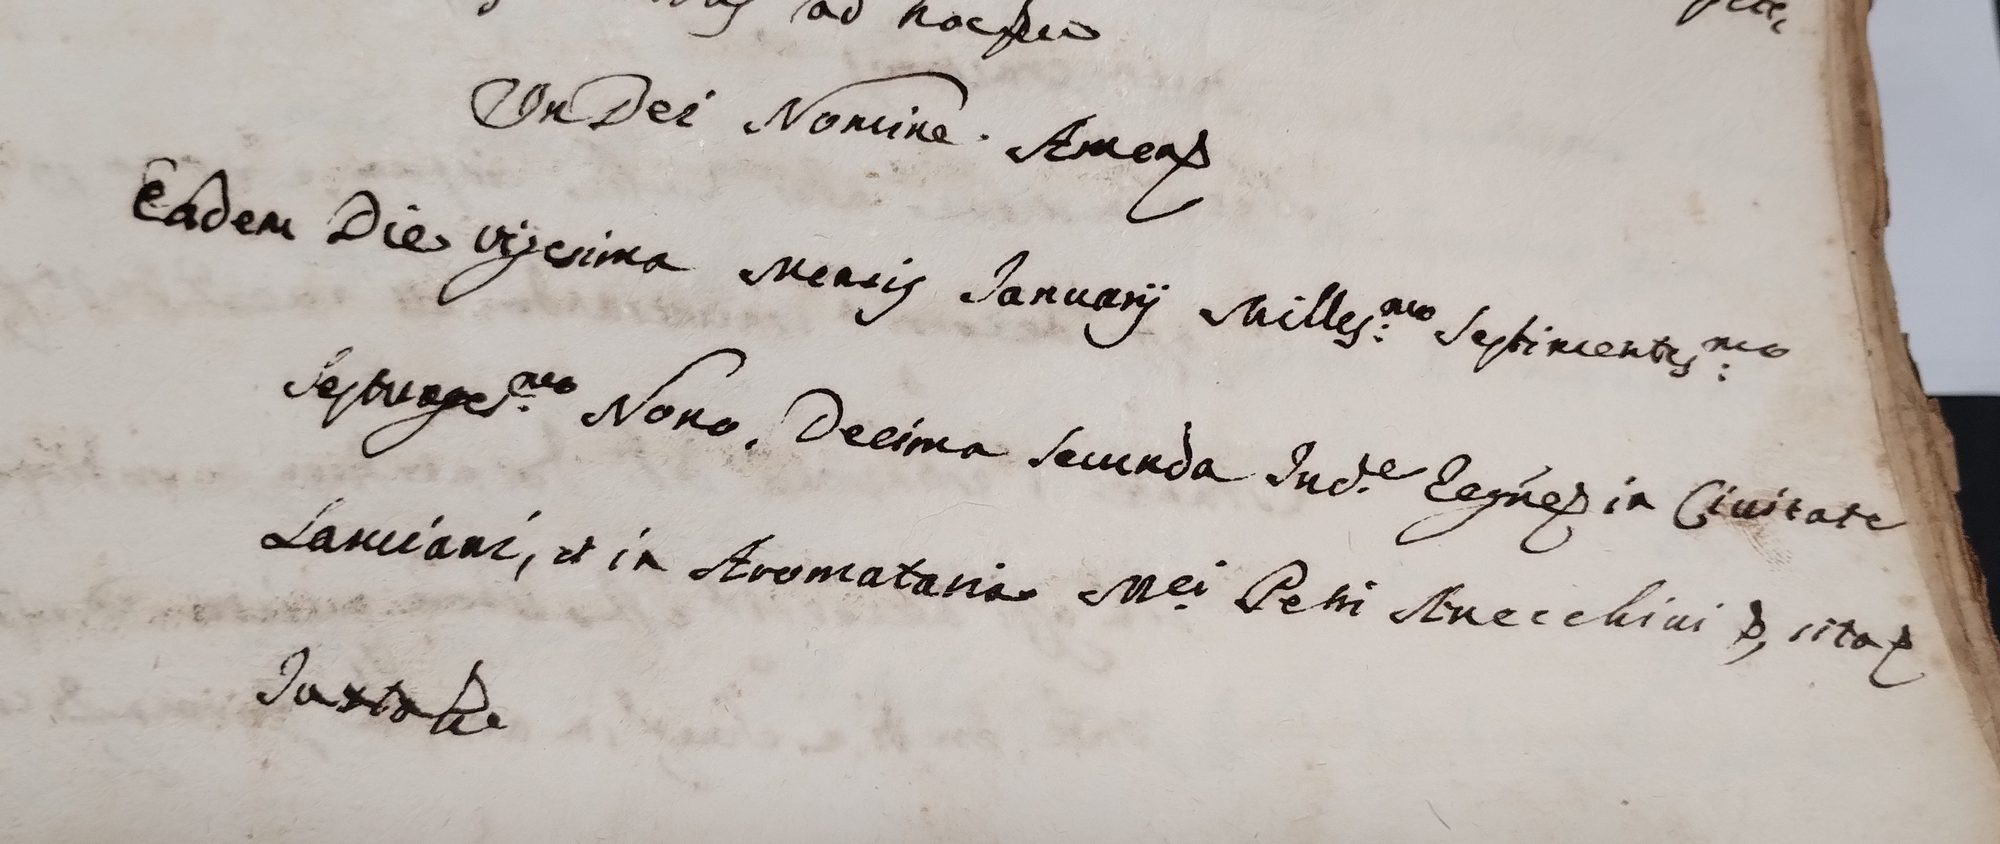 ad hoc
In Dei Nomine. Amen
Eadem Die vigesima Mensis Januarij Milles:mo Septincentes:mo
Septuages:mo Nono. Decima secunda Ind.e Regnes in Civitate
Lanciani, et in Aromataria M.ei Petri Anecchini sita
Juxta